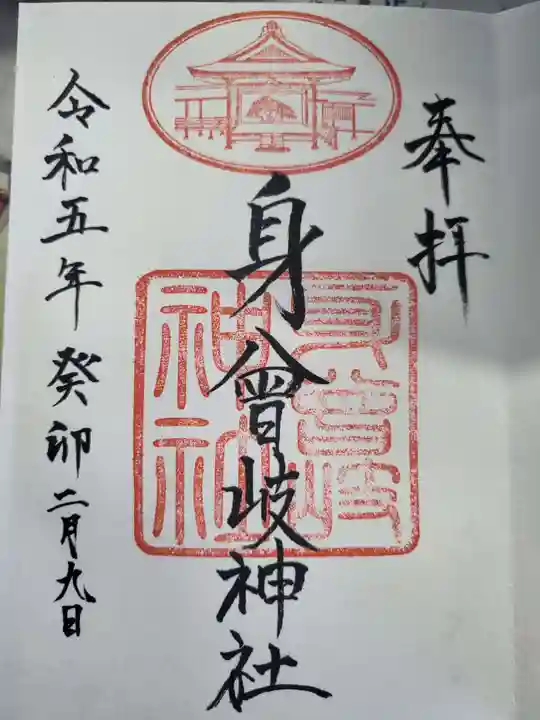 奉拝
身曾岐神社
身曾岐
神社
令和五年 癸卯 二月九日